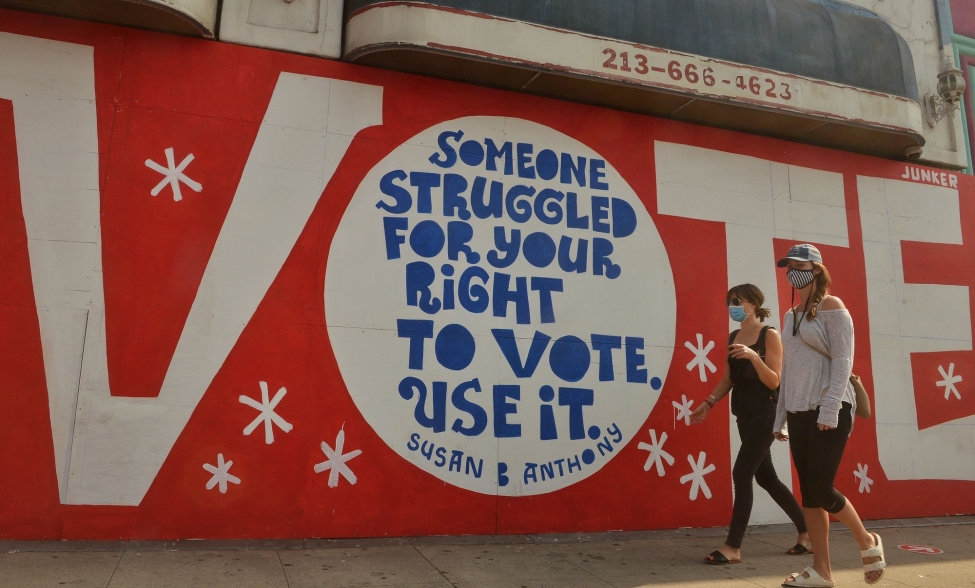 213-666-4623
JUNKER
VOTE
SOMEONE
STRUGGLED
FOR YOUR
RiGHT
TO VOTE.
USE iT.
SUSAN B ANTHONY